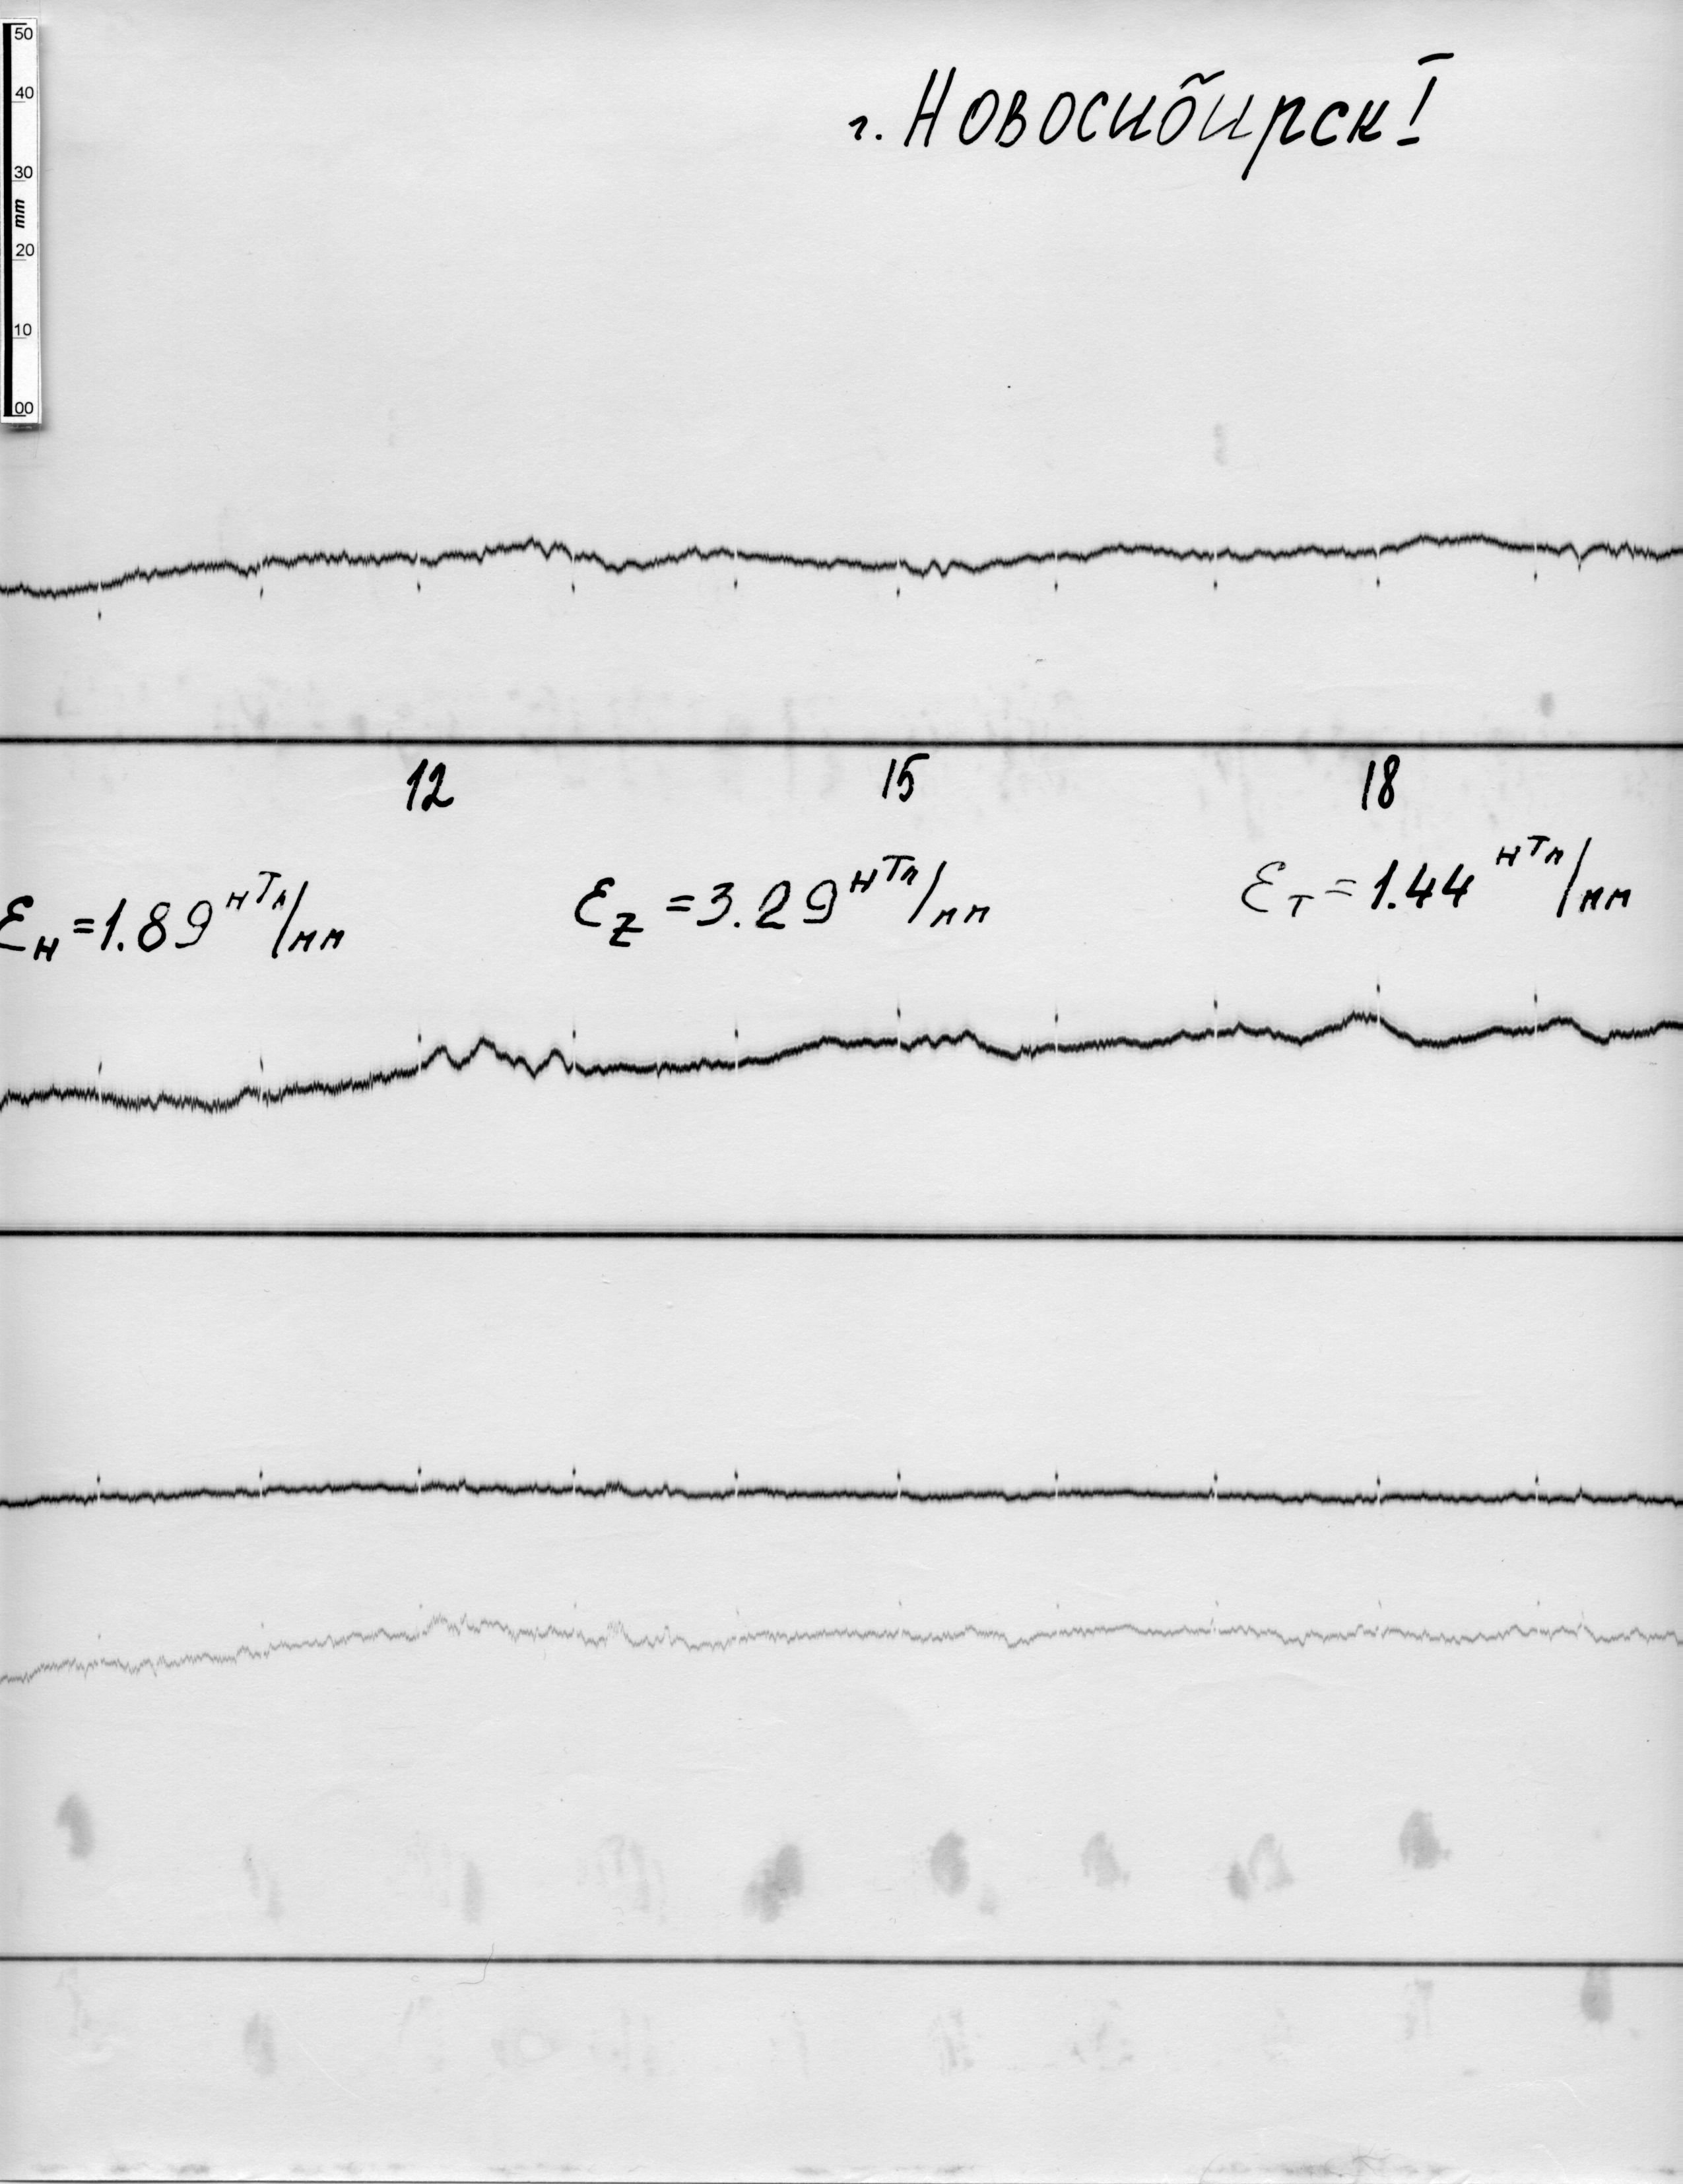 50
40
30
mm
20
10
00
г. Новосибирск I
12 15 18
εH = 1.89 нТл/мм εZ = 3.29 нТл/мм εT = 1.44 нТл/мм